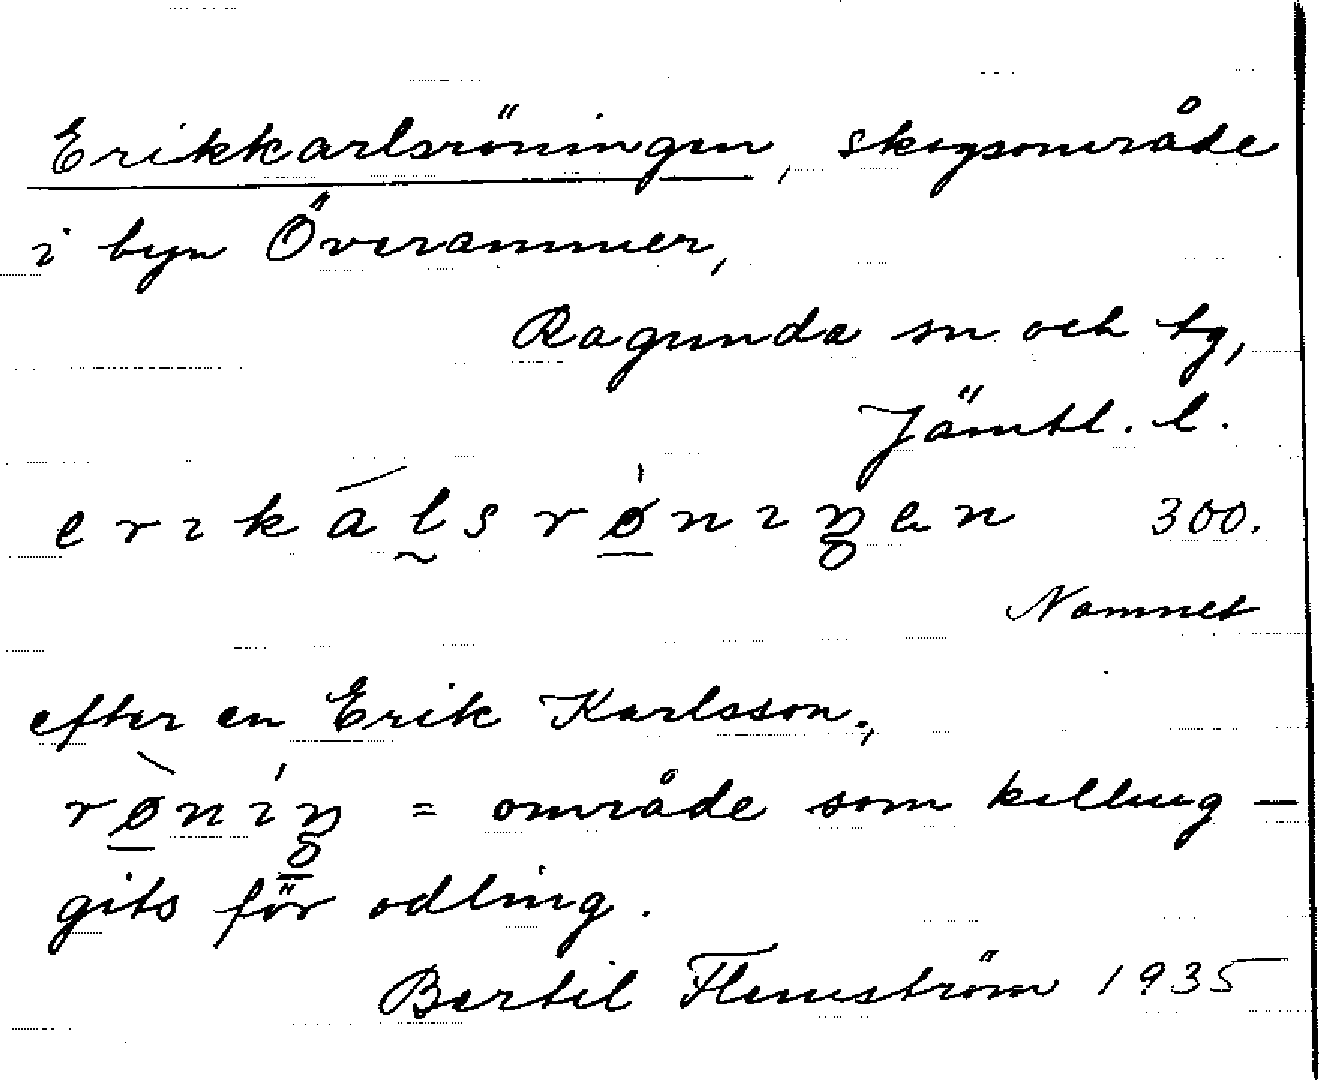 Erikkarlsröningen, skogsområde
i byn Överammer,
Ragunda sn och tg,
Jämtl. l.
erikálsrø̲niŋen 300.
Namnet
efter en Erik Karlsson,
rø̲̀níŋ = område som kalhug-
gits för odling.
Bertil Flemström 1935